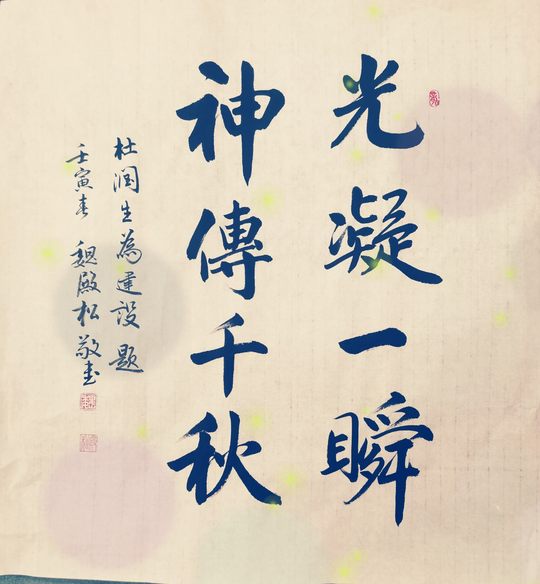 光凝一瞬
神傳千秋
杜润生為建設題
壬寅春 魏殿松敬书